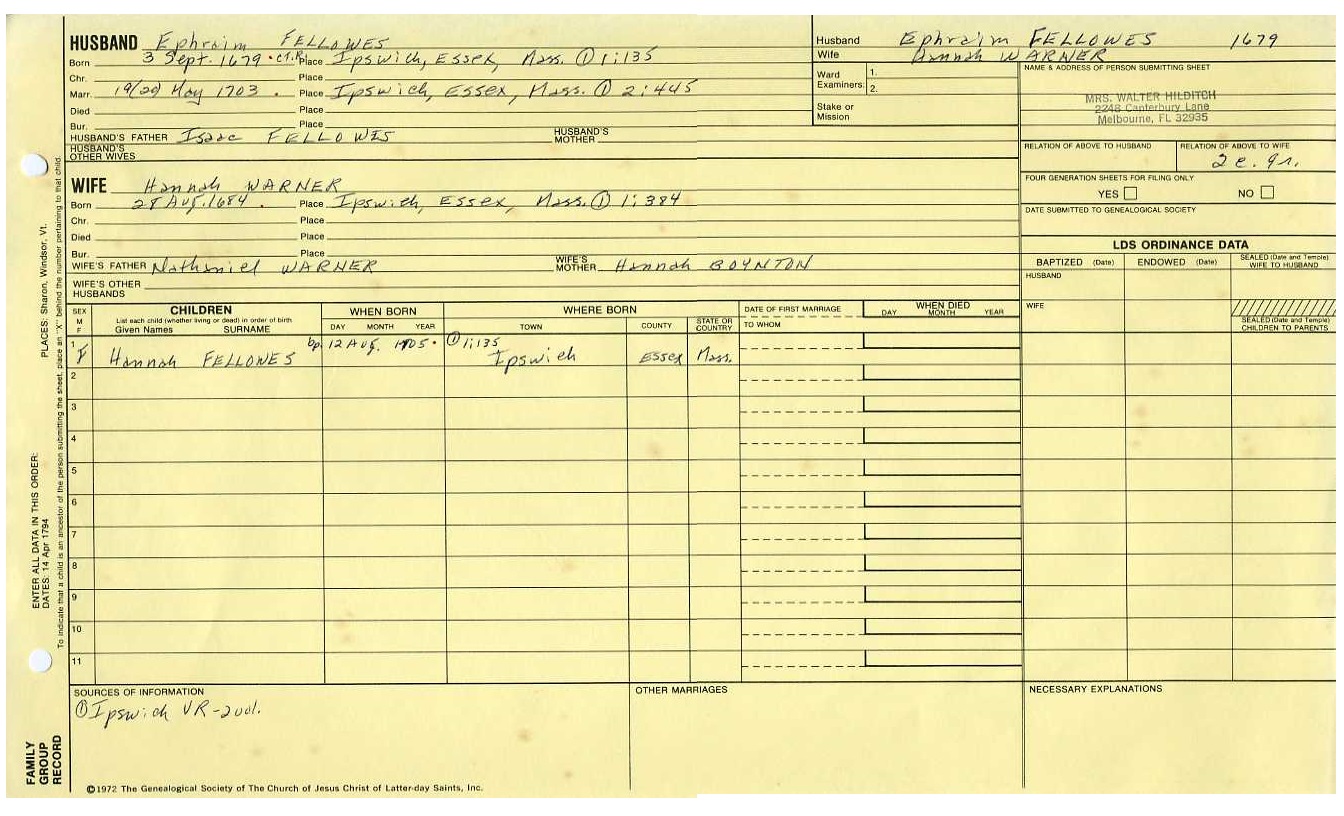 HUSBAND Ephraim FELLOWES
Born 3 Sept. 1679 • CT.R. Place Ipswich, Essex, Mass. ① 1:135
Chr. Place
Marr. 19(20) May 1703 . Place Ipswich, Essex, Mass. ① 2:445
Died Place
Bur. Place
HUSBAND'S FATHER Isaac FELLOWES HUSBAND'S MOTHER
HUSBAND'S OTHER WIVES
WIFE Hannah WARNER
Born 28 Aug. 1684 . Place Ipswich, Essex, Mass. ① 1:384
Chr. Place
Died Place
Bur. Place
WIFE'S FATHER Nathaniel WARNER WIFE'S MOTHER Hannah BOYNTON
WIFE'S OTHER HUSBANDS
Husband Ephraim FELLOWES 1679
Wife Hannah WARNER
Ward Examiners: 1.
2.
Stake or Mission
NAME & ADDRESS OF PERSON SUBMITTING SHEET
MRS. WALTER HILDITCH
2248 Canterbury Lane
Melbourne, FL 32935
RELATION OF ABOVE TO HUSBAND RELATION OF ABOVE TO WIFE
2 c. gr.
FOUR GENERATION SHEETS FOR FILING ONLY
YES NO
DATE SUBMITTED TO GENEALOGICAL SOCIETY
LDS ORDINANCE DATA
BAPTIZED (Date) ENDOWED (Date) SEALED (Date and Temple) WIFE TO HUSBAND
HUSBAND
WIFE
SEALED (Date and Temple) CHILDREN TO PARENTS
SEX M F
CHILDREN
List each child (whether living or dead) in order of birth
Given Names SURNAME
WHEN BORN
DAY MONTH YEAR
WHERE BORN
TOWN COUNTY STATE OR COUNTRY
DATE OF FIRST MARRIAGE
TO WHOM
WHEN DIED
DAY MONTH YEAR
1 F Hannah FELLOWES bp. 12 Aug. 1705 • ① 1:135 Ipswich Essex Mass.
2
3
4
5
6
7
8
9
10
11
SOURCES OF INFORMATION
① Ipswich VR-2vol.
OTHER MARRIAGES
NECESSARY EXPLANATIONS
©1972 The Genealogical Society of The Church of Jesus Christ of Latter-day Saints, Inc.
FAMILY GROUP RECORD
ENTER ALL DATA IN THIS ORDER:
DATES: 14 Apr 1794 PLACES: Sharon, Windsor, Vt.
To indicate that a child is an ancestor of the person submitting the sheet, place an "X" behind the number pertaining to that child.